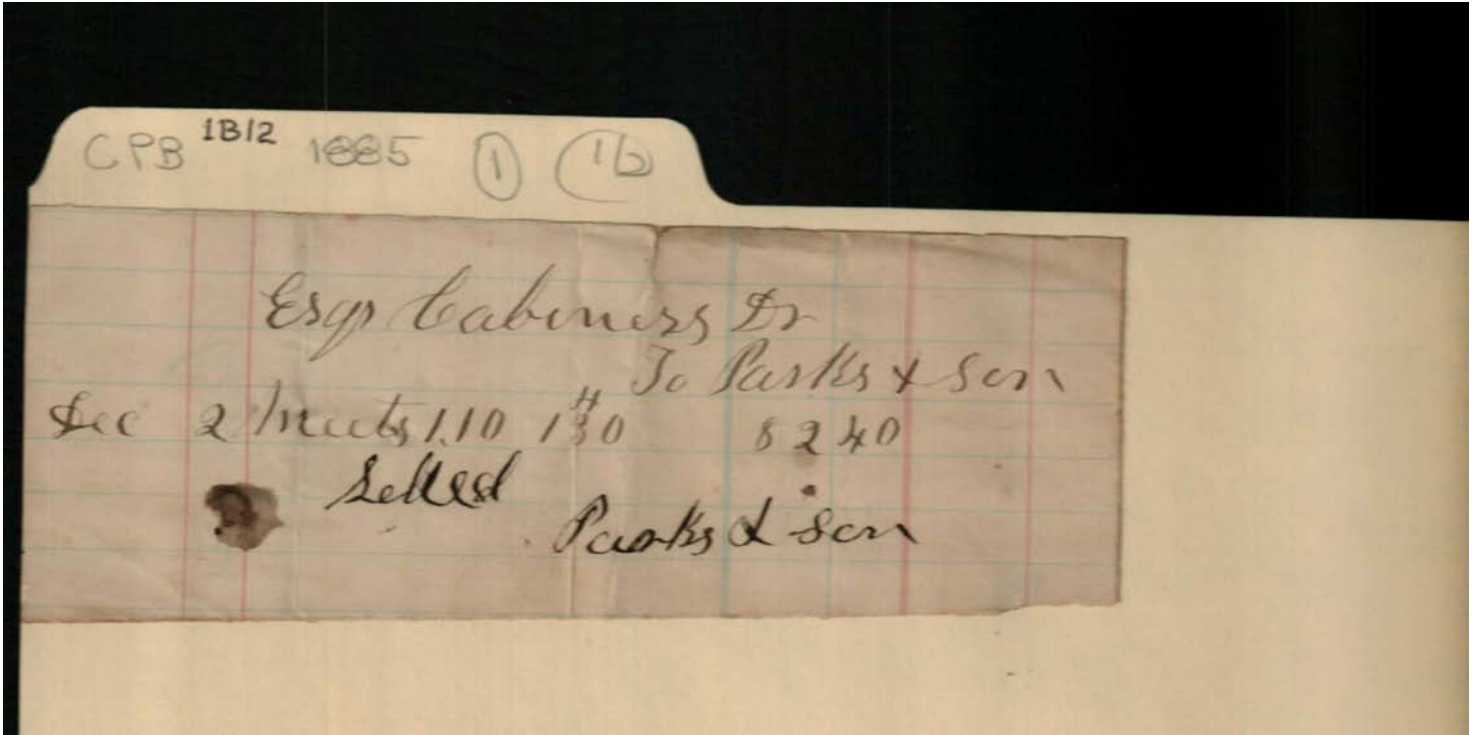 CPB 1B12 1885 1 1b
Esqr Cabiness Dr
To Parks & Son
Dec 2 Meets 1.10 130 $ 2 40
Settled
Parks & Son